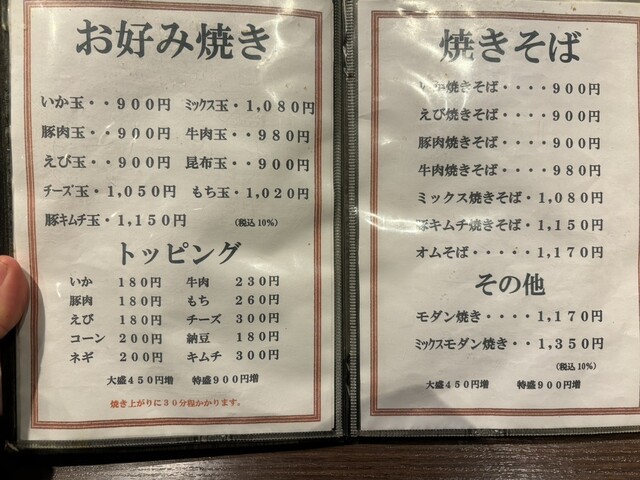 お好み焼き
いか玉・・900円 ミックス玉・1,080円
豚肉玉・・900円 牛肉玉・・980円
えび玉・・900円 昆布玉・・900円
チーズ玉・1,050円 もち玉・1,020円
豚キムチ玉・1,150円 (税込10%)
トッピング
いか 180円 牛肉 230円
豚肉 180円 もち 260円
えび 180円 チーズ 300円
コーン 200円 納豆 180円
ネギ 200円 キムチ 300円
大盛450円増 特盛900円増
焼き上がりに30分程かかります。
焼きそば
いか焼きそば・・・・900円
えび焼きそば・・・・900円
豚肉焼きそば・・・・900円
牛肉焼きそば・・・・980円
ミックス焼きそば・1,080円
豚キムチ焼きそば・1,150円
オムそば・・・・・1,170円
その他
モダン焼き・・・・1,170円
ミックスモダン焼き・・1,350円
(税込10%)
大盛450円増 特盛900円増